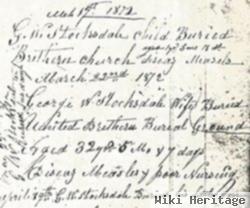 Mch 19th 1872
G. W. Stocksdale Child Buried
Brethern Church Diseas Measels
March 22nd 1872
George W Stocksdale Wife Buried
United Brethern Burial Ground
Aged 32 yrs 5 Mo & 7 days
Diseas Measles & poor Nursing
April 19th G. W. Stocksdale
Wiki Heritage